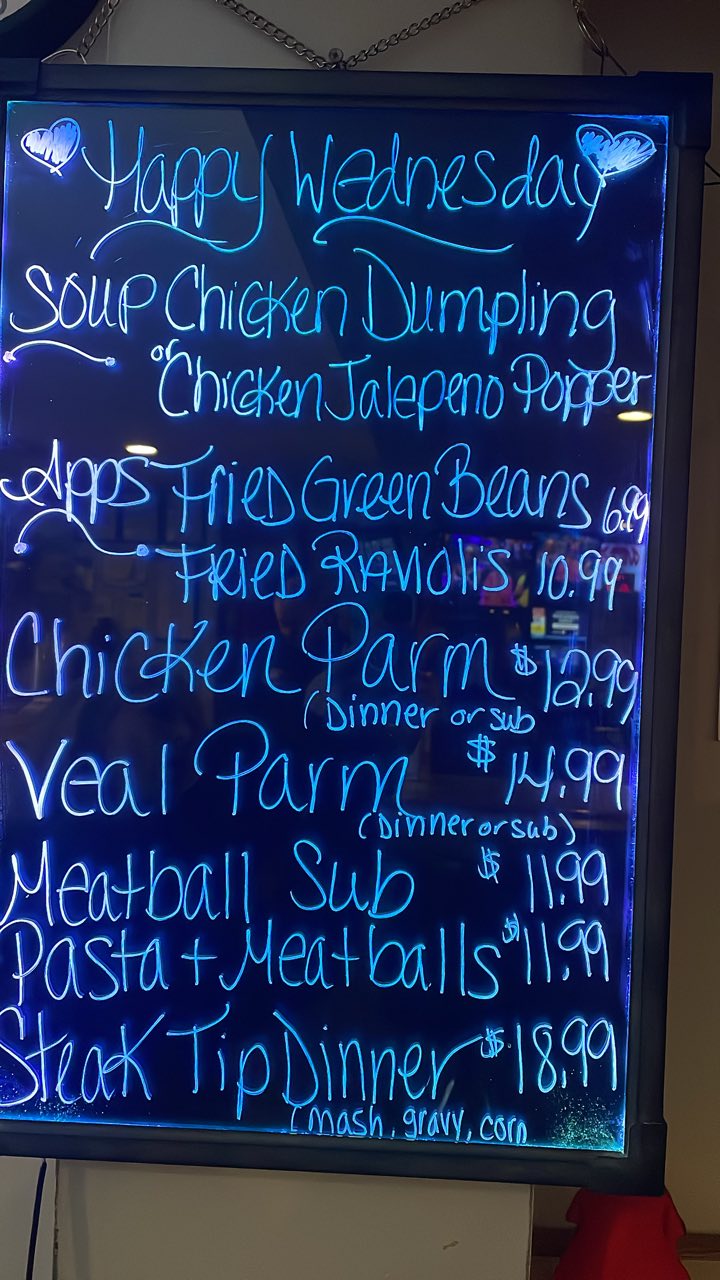 Happy Wednesday
Soup Chicken Dumpling
or
Chicken Jalepeno Popper
Apps Fried Green Beans 6.99
Fried Raviolis 10.99
Chicken Parm $12.99
(Dinner or sub
Veal Parm $14.99
(Dinner or sub)
Meatball Sub $11.99
Pasta + Meatballs $11.99
Steak Tip Dinner $18.99
(mash, gravy, corn